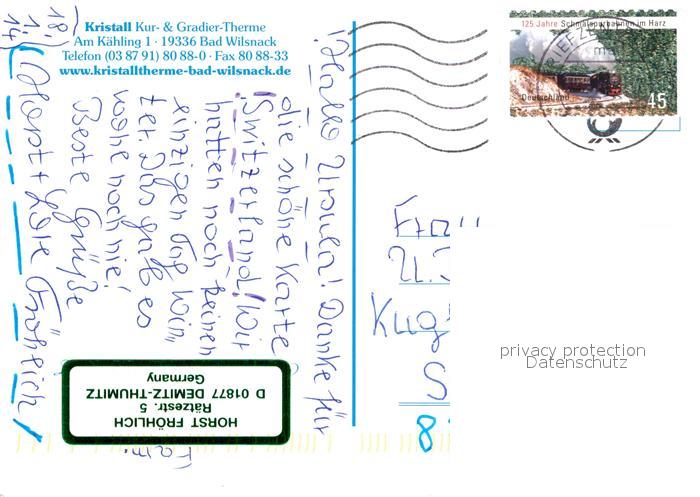 Kristall Kur- & Gradier-Therme
Am Kähling 1 · 19336 Bad Wilsnack
Telefon (03 87 91) 80 88-0 · Fax 80 88-33
www.kristalltherme-bad-wilsnack.de
18.
1.
14
! Hallo Ursula! Danke für
die schöne Karte
! Switzerland! Wir
hatten noch keinen
einzigen Tag Win"
ter. Das gab es
noch nie!
Beste Grüße
Horst + Fröhlich
HORST FRÖHLICH
Rätzestr. 5
D 01877 DEMITZ-THUMITZ
Germany
125 Jahre Schmalspurbahnen im Harz
Deutschland
45
Frau
Kug
S
8
privacy protection
Datenschutz